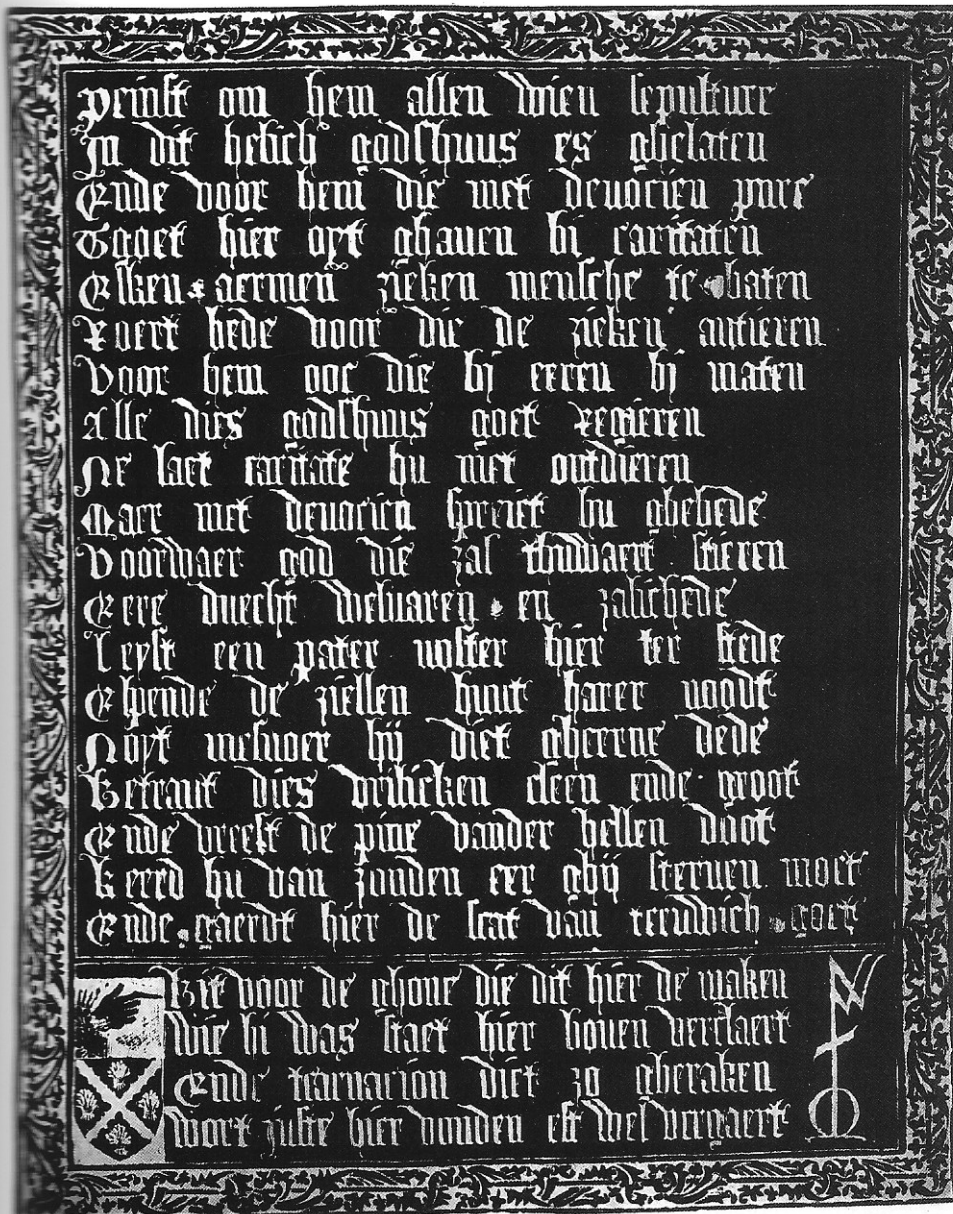 Peinst om hem allen wien sepulture
In dit helich godshuus es ghelaten
Ende voor hem die met devocien pure
Tgoet hier oyt ghaven bi caritaten
Elken aermen zieken mensche te baten
Roert bede voor die de zieken antieren
Voor hem ooc die bi eeren bi maten
Alle dies godshuus goet regieren
Ne laet caritate hu niet ontdieren
Maer met devocien spreict hu ghebede
Voorwaer god die zal thuwaert stieren
Eere duecht welvaren en zalichede
Leyst een pater noster hier ter stede
Ehpende de ziellen huut harer noodt
Noyt mesvoer hij diet gheerne dede
Betraut dies drilicken cleen ende groot
Ende vreest de pine vander hellen doot
Keerd hu van zonden eer ghij sterven moet
Ende gaerdt hier de scat van eeuwich goet
Bit voor de ghone die dit hier de maken
Wie hi was staet hier boven verclaert
Ende tcarnacion diet zo gheraken
Wort juste hier vonden est wel vergaert